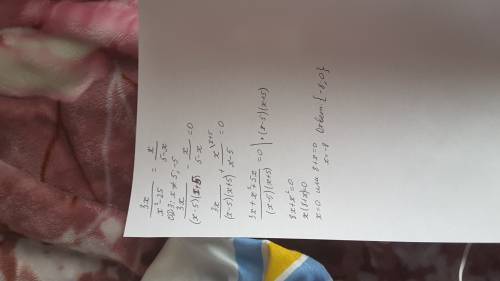 3x / x²-25 = x / 5-x
ОДЗ: x ≠ 5; -5
3x / (x-5)(x+5) - x / 5-x = 0
3x / (x-5)(x+5) + x\x+5 / x-5 = 0
3x + x²+5x / (x-5)(x+5) = 0 | · (x-5)(x+5)
8x+x²=0
x(8+x)=0
x=0 или 8+x=0
x=-8 Ответ {-8; 0}